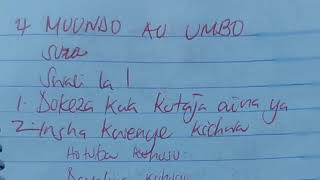 4 MUUNDO AU UMBO
sura
Swali la 1
1. Dokeza kwa kutaja aina ya
2. Insha kwenye kichwa
Hotuba kuhusu
kuhusu